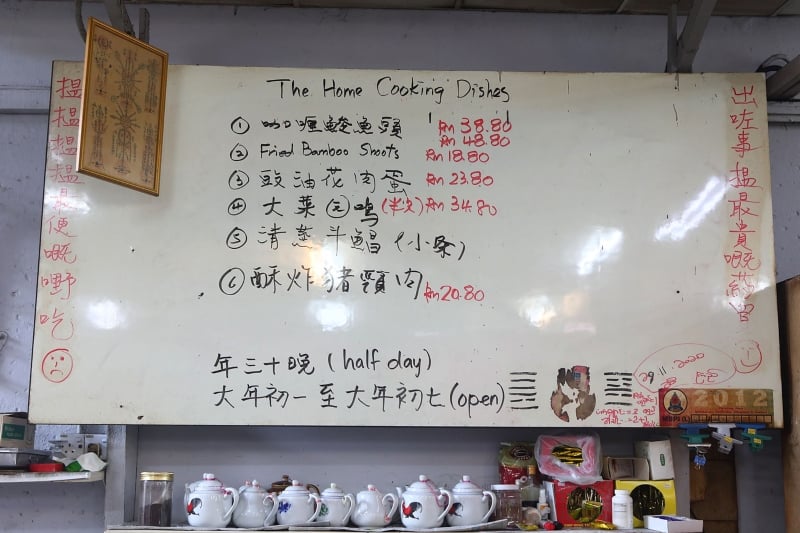 The Home Cooking Dishes
① 咖喱鯪魚頭 RM 38.80
RM 48.80
② Fried Bamboo Shoots RM 18.80
③ 豉油花肉蛋 RM 23.80
④ 大菜 鸡 (半只) RM 34.80
⑤ 清蒸斗鯧 (小条)
⑥ 酥炸豬頸肉 RM 20.80
年三十晚 (half day)
大年初一至大年初七 (open)
揾揾揾揾最便嘅嘢吃
出咗事揾最貴嘅
29.11.2020
2012